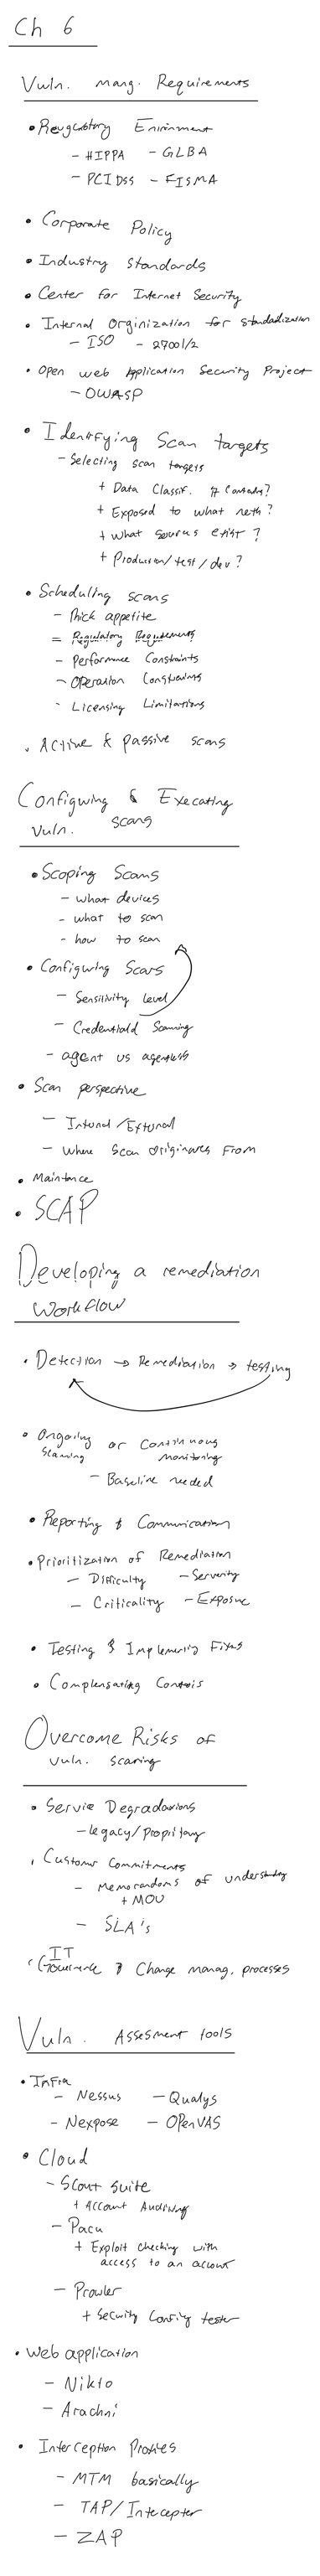 Ch 6
Vuln. mang. Requirements
• Reugulatory Enirinment
- HIPPA - GLBA
- PCI DSS - FISMA
• Corporate Policy
• Industry Standards
• Center for Internet Security
• Internal Orginization for standadization
- ISO - 27001/2
• Open web Application Security Project
- OWASP
• Identifying Scan targets
- Selecting scan targets
+ Data Classif. of
+ Exposed to what netw?
+ What services exist?
+ Production/test/dev?
• Scheduling scans
- appetite
= Regulatory Requirements
- Performance Constraints
- Operation Constraints
- Licensing Limitations
• Active & passive scans
Configuring & Executing
Vuln. scans
• Scoping Scans
- what devices
- what to scan
- how to scan
• Configuring Scans
- Sensitivity Level
- Credentiald Scanning
- agent vs agentless
• Scan perspective
- Internal/External
- Where Scan Originates From
• Maintance
• SCAP
Developing a remediation
Workflow
• Detection → Remediation → testing
• Ongoing or Continuous
Scanning monitoring
- Baseline needed
• Reporting & Communication
• Prioritization of Remediation
- Difficulty - Serverity
- Criticality - Exposure
• Testing & Implementing Fixes
• Complensating Controls
Overcome Risks of
Vuln. scaning
• Service Degradations
- legacy/propritary
• Customer Commitments
- Memorandoms of understanding
+ MOU
- SLA's
• IT
Governence & Change manag. processes
Vuln. Assesment tools
• Infra
- Nessus - Qualys
- Nexpose - OpenVAS
• Cloud
- Scout Suite
+ Account Auditing
- Pacu
+ Exploit Checking with
access to an account
- Prowler
+ Security Config tester
• Web application
- Nikto
- Arachni
• Interception Proxies
- MTM basically
- TAP/Intercepter
- ZAP